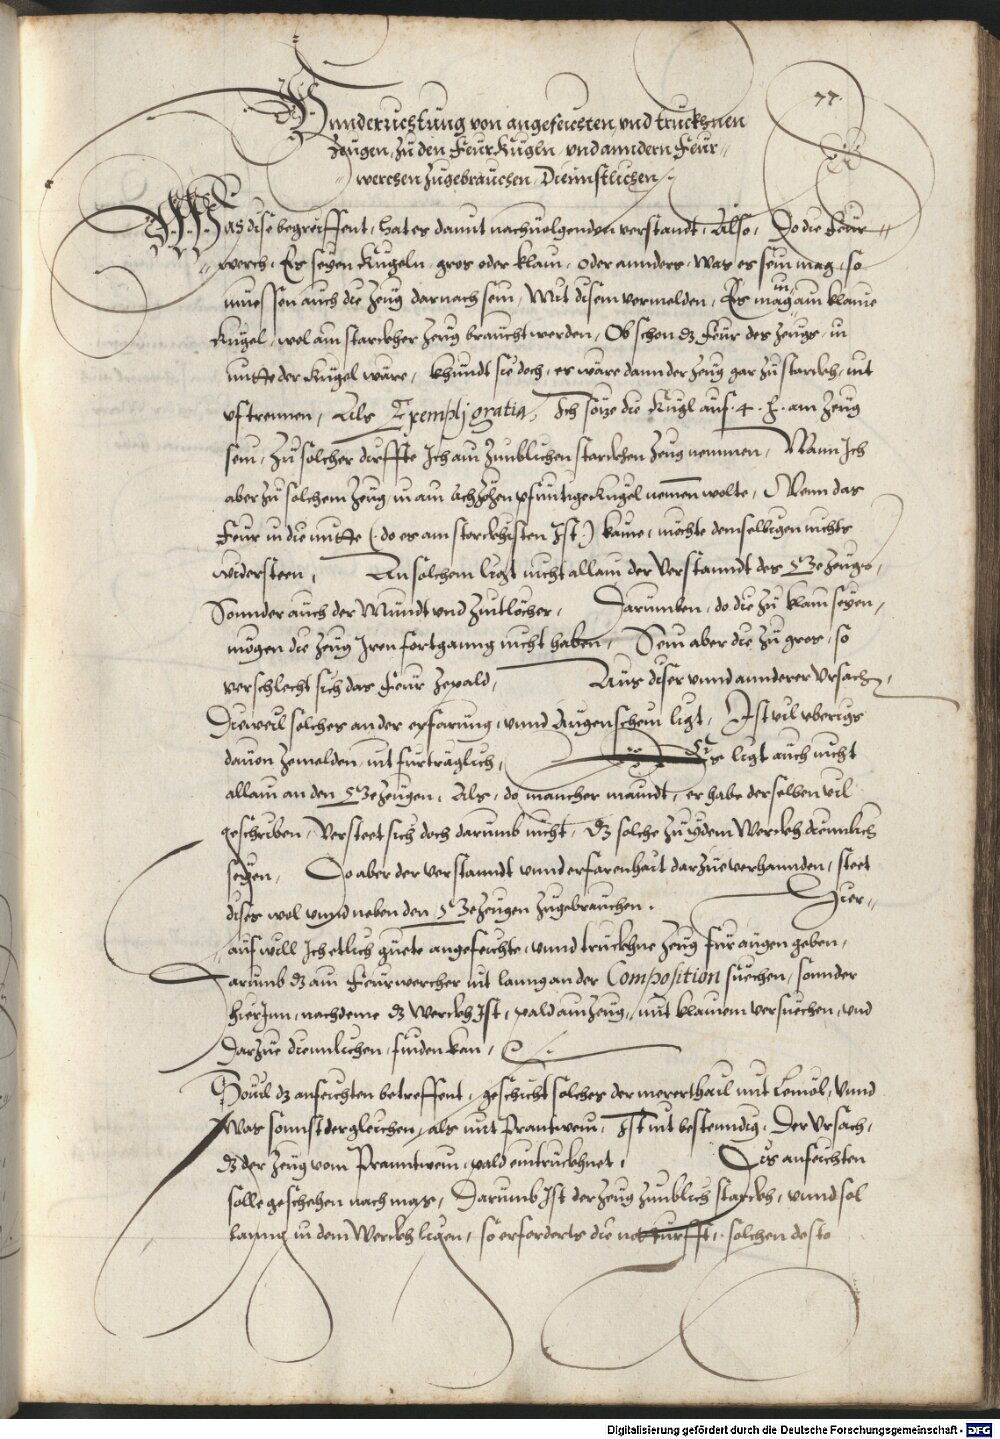 77.
Vnnderrichtung von angefeichten, vnd trucknen
Zeugen, zu den Feur Kugln, vnd anndern Feur-
wercken zugebrauchen, Diennstlichen.
Was dise begreiffent, hat es damit nachuolgenden verstandt, Also, Do die Feur
werch, Es seyen Kugeln, gros oder klain, oder annders, was es sein mag, so
muessen auch die Zeug darnach sein, Mit disem vermelden, Es mag in ain klaine
Kugel, wol ain starckher Zeug braucht werden, Ob schon dz Feur des Zeugs, in
mitte der Kugel wäre, khundt sie doch, es wäre dann der Zeug gar zu starckh, nit
zertrennen, Als Exempli gratia, Ich setze die Kugl auf 4 lb. am Zeug
sein, zu solcher dirffte Ich ain zimblichen starckhen Zeug nemmen, Wann Ich
aber zu solchem Zeug, in ain achzehen pfuntige Kugel nemen wolte, Wenn das
Feur in die mitte (do es am sterckhisten Ist) kame, mechte demselbigen nichts
widersteen, An solchem ligt nicht allain der Verstanndt des Bezeugs,
Sonnder auch der Mundt vnd Zintlöcher, Darumben, do die zu klain seyen,
mögen die Zeug Iren fortganng nicht haben, Sein aber die zu gros, so
verschlecht sich das Feur zepald, Aus diser vnnd annderer Vrsach,
Dieweil solches an der erfarung, vnnd Augenschein ligt, Ist vil vberigs
dauon zemelden, nit fürträglich, Es ligt auch nicht
allain an den Bezeugen, Als, do mancher maindt, er habe derselben vil
geschriben, Versteet sich doch darumb nicht, dz solche zu yedem Werckh diennlich
seyen, Do aber der verstanndt vnnd erfarenhait darzue verhannden, steet
dises wol vnnd neben den Bezeugen zugebrauchen. Hier-
auf will Ich etlich guete angefeichte, vnnd truckhne Zeug für augen geben,
Darumb dz ain Feurwercher nit lanng an der Composition suechen, sonnder
hierinn, nachdeme dz Werckh Ist, pald ain Zeug, mit klainem versuechen, vnd
Darzue diennlichen, finden kan,
Souil dz anfeichten betreffent, geschicht solches der merer thail mit Leinöl, vnnd
Was sonnst dergleichen, als mit Prantwein, Ist nit bestenndig, Der Vrsach,
dz der Zeug vom Pranntwein, pald eintruckhnet, Dis anfeichten
solle geschehen nach mas, Darumb Ist der Zeug zimblich starckh, vnnd sol
lanng in dem Werckh ligen, so erforderts die noturfft, solchen desto
Digitalisierung gefördert durch die Deutsche Forschungsgemeinschaft - DFG